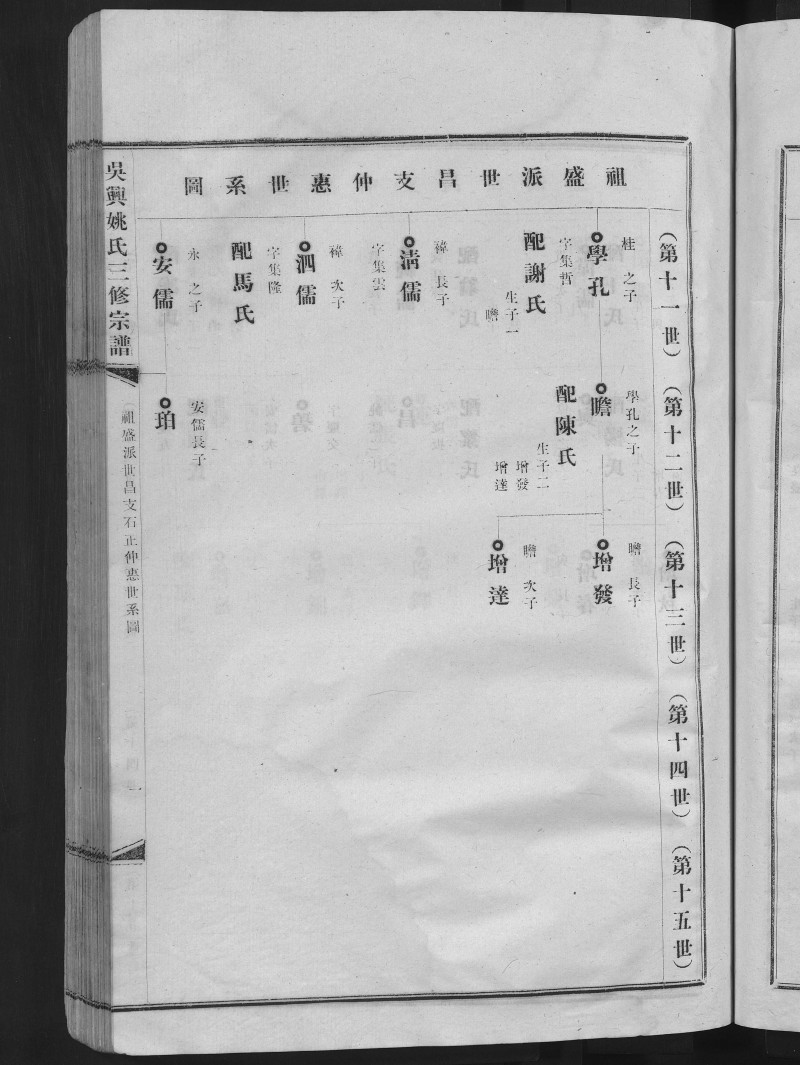 祖盛派世昌支仲惠世系圖
(第十一世)
(第十二世)
(第十三世)
(第十四世)
(第十五世)
桂之子
學孔
字集哲
配謝氏
生子一
瞻
學孔之子
瞻
配陳氏
生子二
增發
增達
瞻長子
增發
瞻次子
增達
禕長子
淸儒
字集雲
禕次子
泗儒
字集隆
配馬氏
永之子
安儒
安儒長子
珀
吳興姚氏三修宗譜
(祖盛派世昌支石正仲惠世系圖